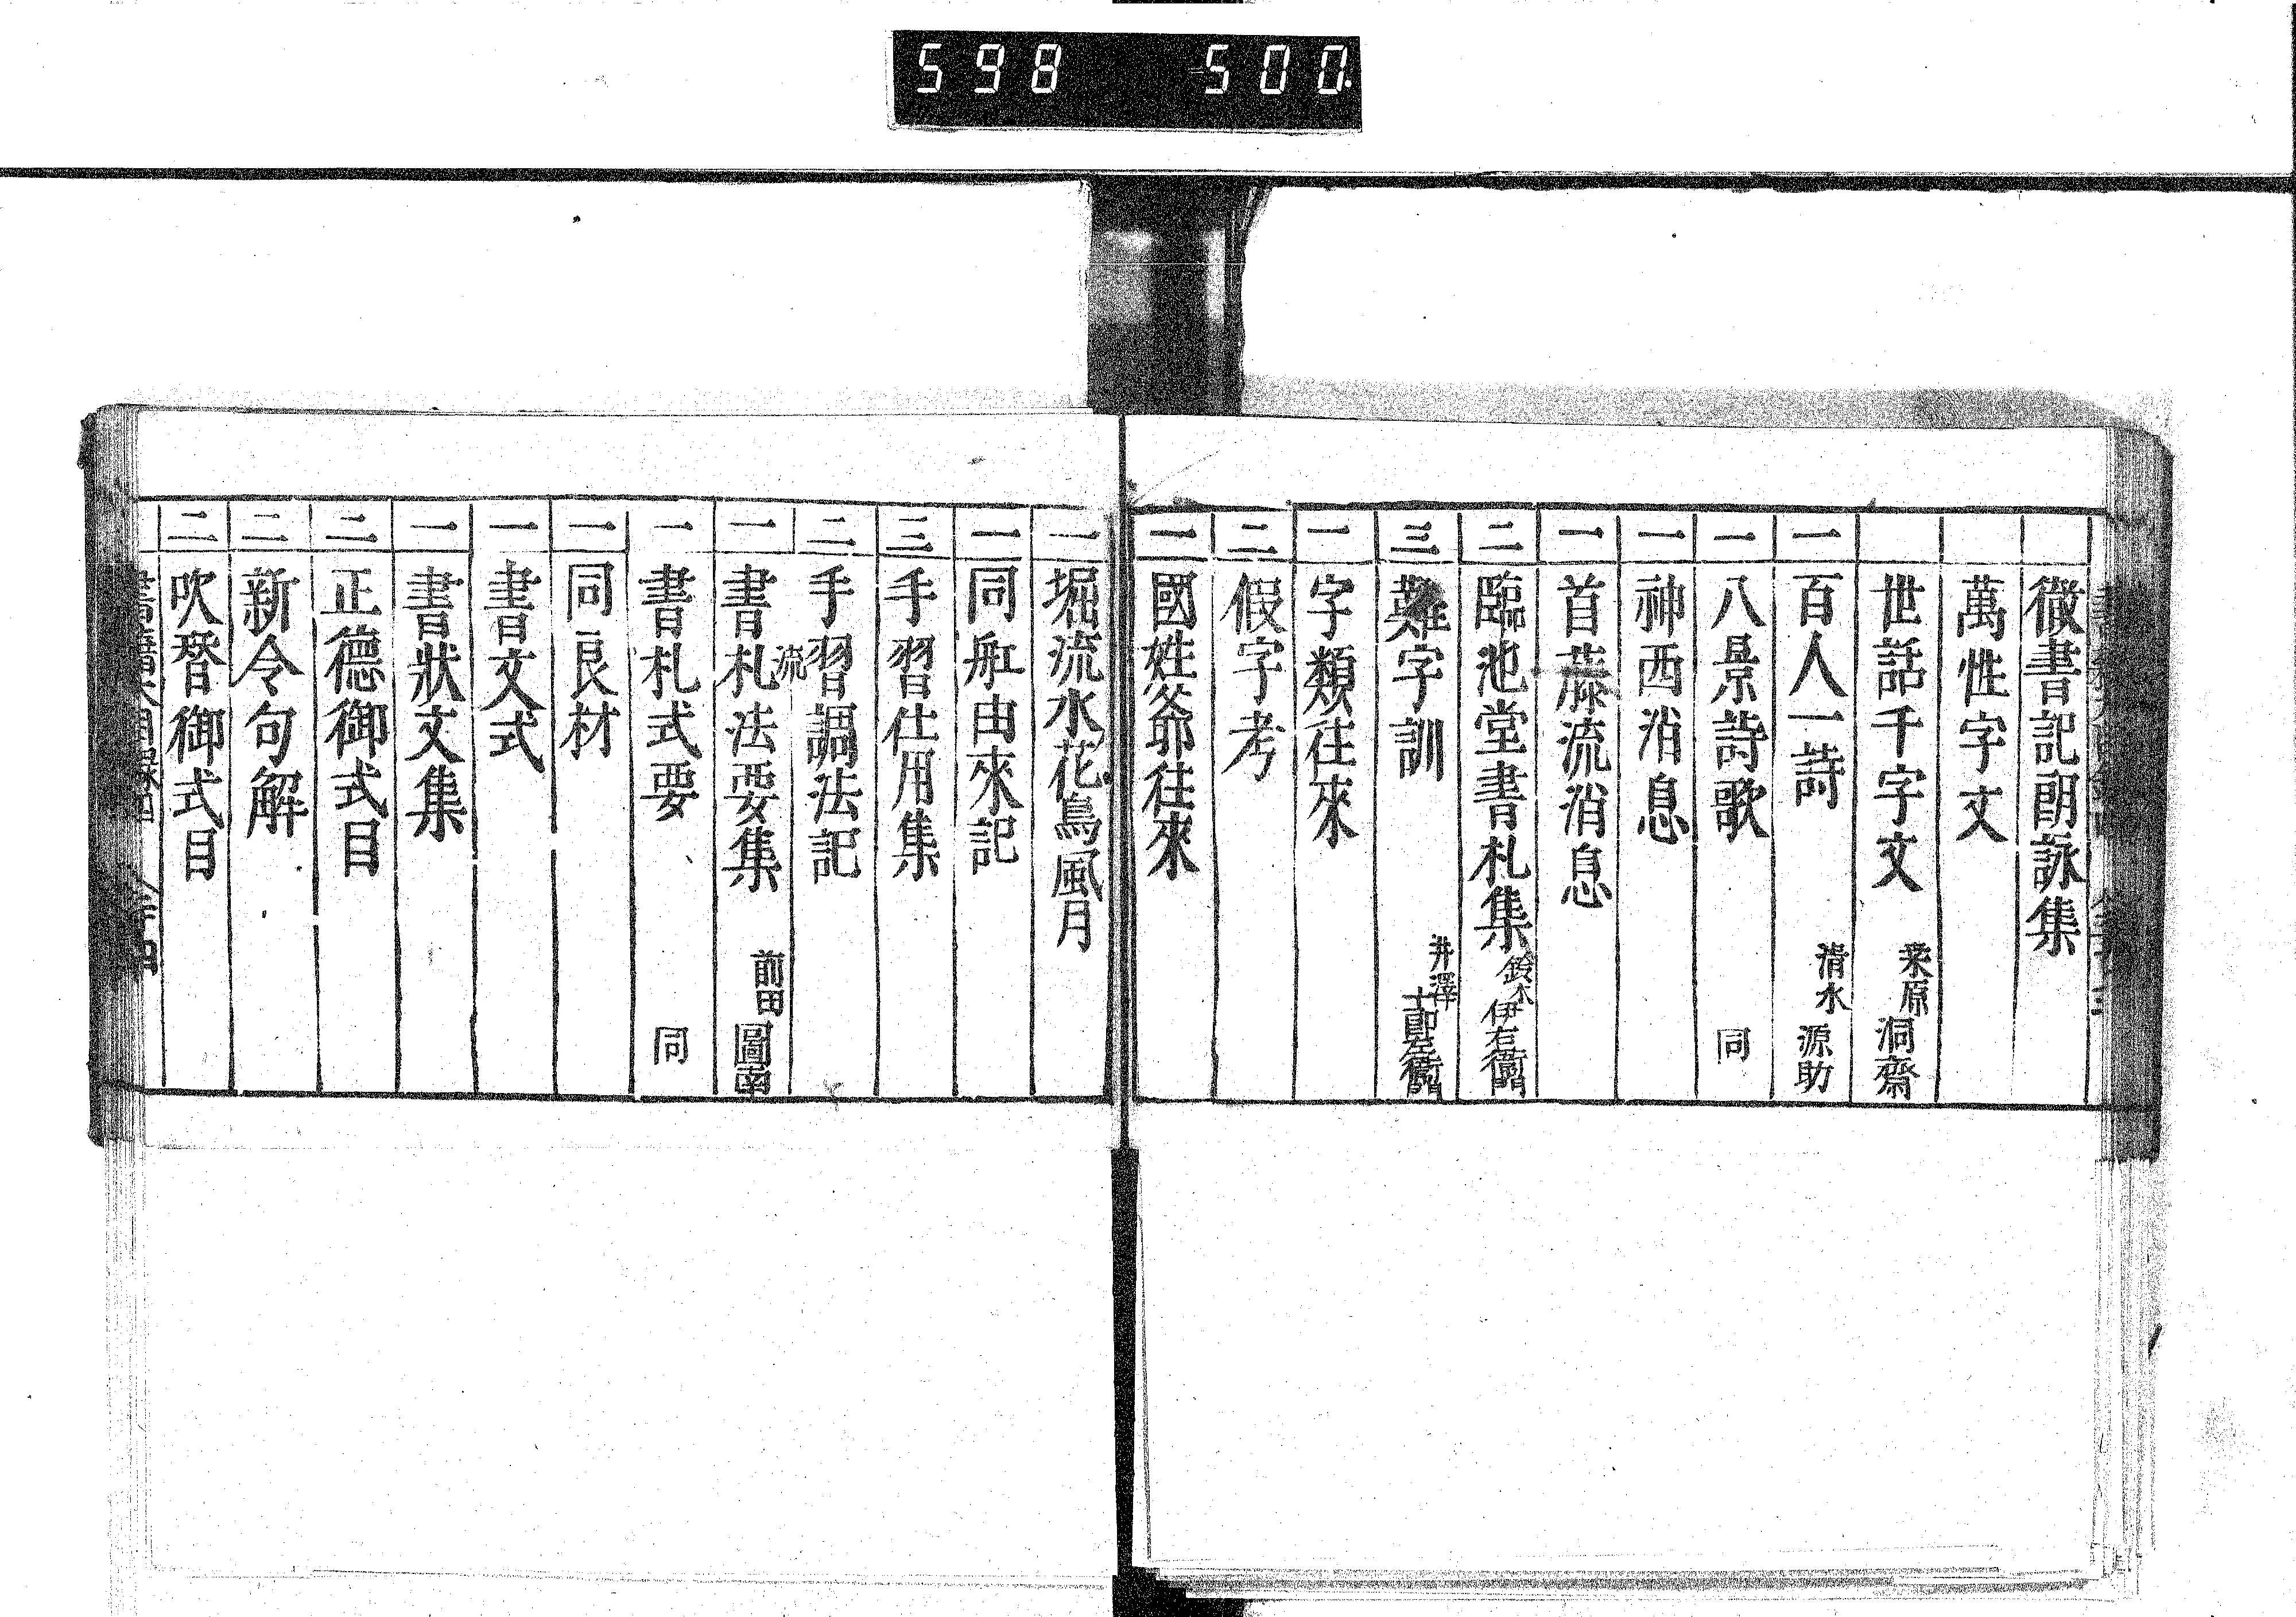 598 500.
徴書記朗詠集
萬性字文
世話千字文 桒原 洞齋
一 百人一詩 清水 源助
一 八景詩歌 同
一 神西消息
一 首藤流消息
二 臨池堂書札集 鈴木 伊右衞門
三 難字訓 井澤 十郎左衞門
一 字類往來
二 假字考
一 國姓爺往來
一 堀流水花鳥風月
一 同舩由來記
三 手習仕用集
二 手習調法記
一 書札流法要集 前田 圖南
一 書札式要 同
一 同良材
一 書文式
一 書狀文集
二 正德御式目
二 新令句解
二 吹替御式目